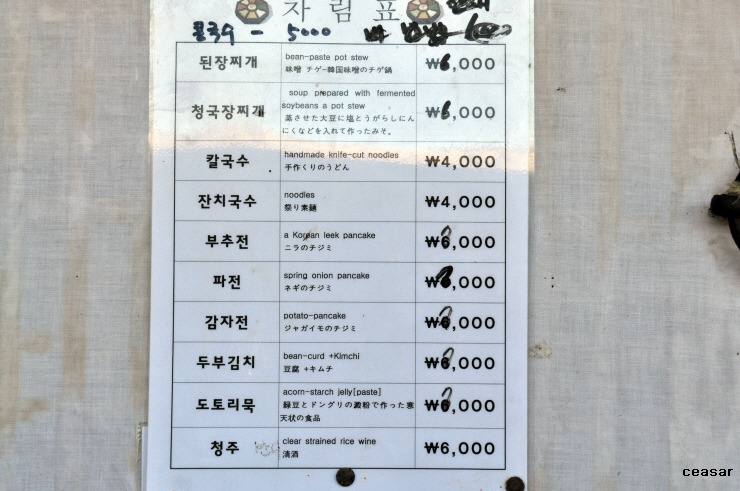 차림표
콩국수 - 5000
된장찌개 bean-paste pot stew ₩6,000
味噌 チゲ-韓国味噌のチゲ鍋
청국장찌개 soup prepared with fermented ₩6,000
soybeans a pot stew
蒸させた大豆に塩とうがらしにん
にくなどを入れて作ったみそ。
칼국수 handmade knife-cut noodles ₩4,000
手作くりのうどん
잔치국수 noodles ₩4,000
祭り素麺
부추전 a Korean leek pancake ₩ ,000
ニラのチジミ
파전 spring onion pancake ₩ ,000
ネギのチジミ
감자전 potato-pancake ₩ ,000
ジャガイモのチジミ
두부김치 bean-curd +Kimchi ₩ ,000
豆腐 +キムチ
도토리묵 acorn-starch jelly[paste] ₩ ,000
緑豆とドングリの澱粉で作った寒
天状の食品
청주 clear strained rice wine ₩6,000
清酒
ceasar